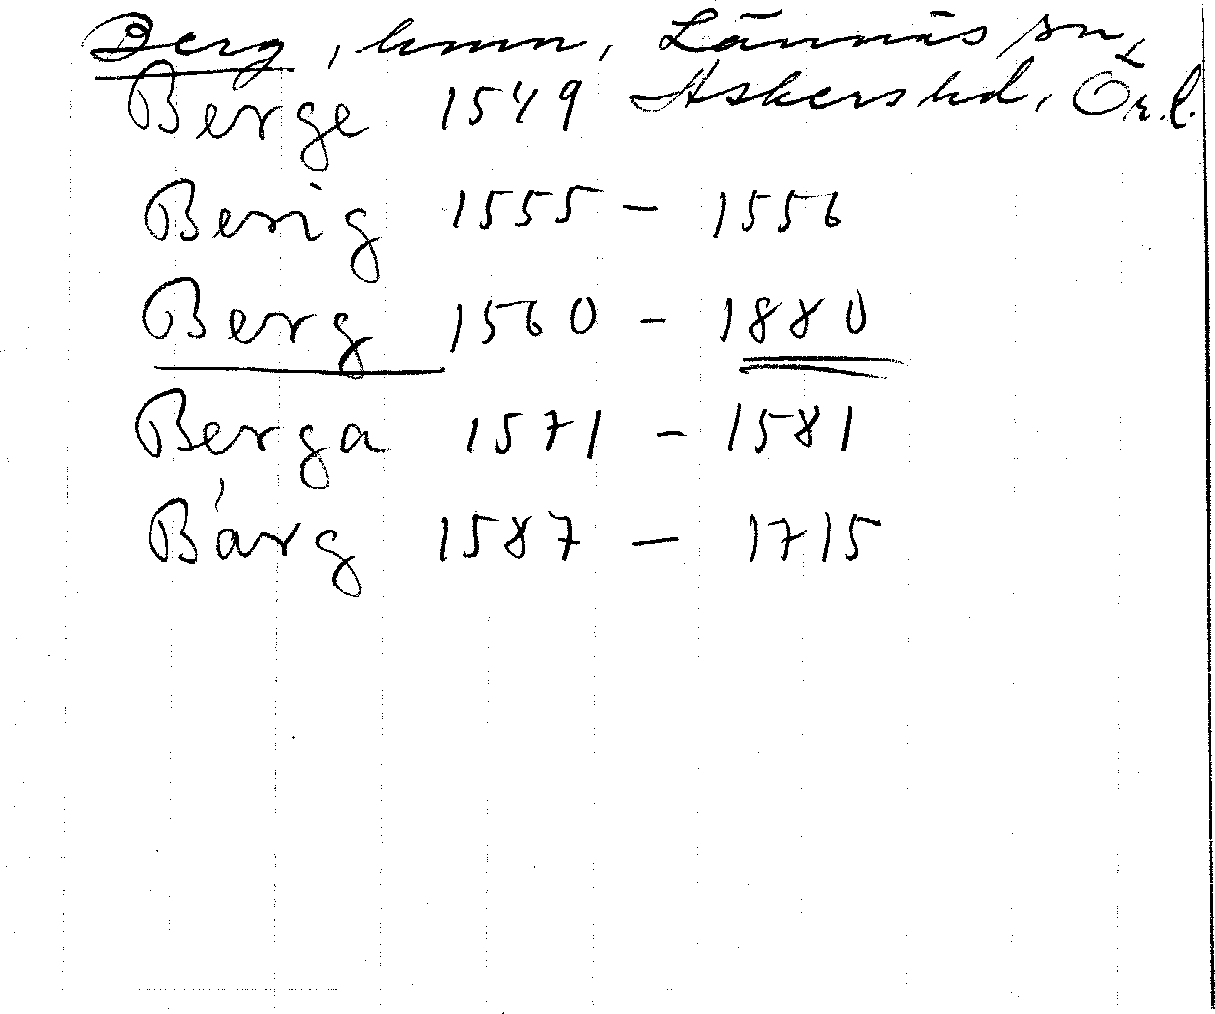 Berg, hmn, Lännäs sn,
Askers hd, Ör. l.
Berge 1549
Berig 1555 - 1556
Berg 1560 - 1880
Berga 1571 - 1581
Bárg 1587 - 1715